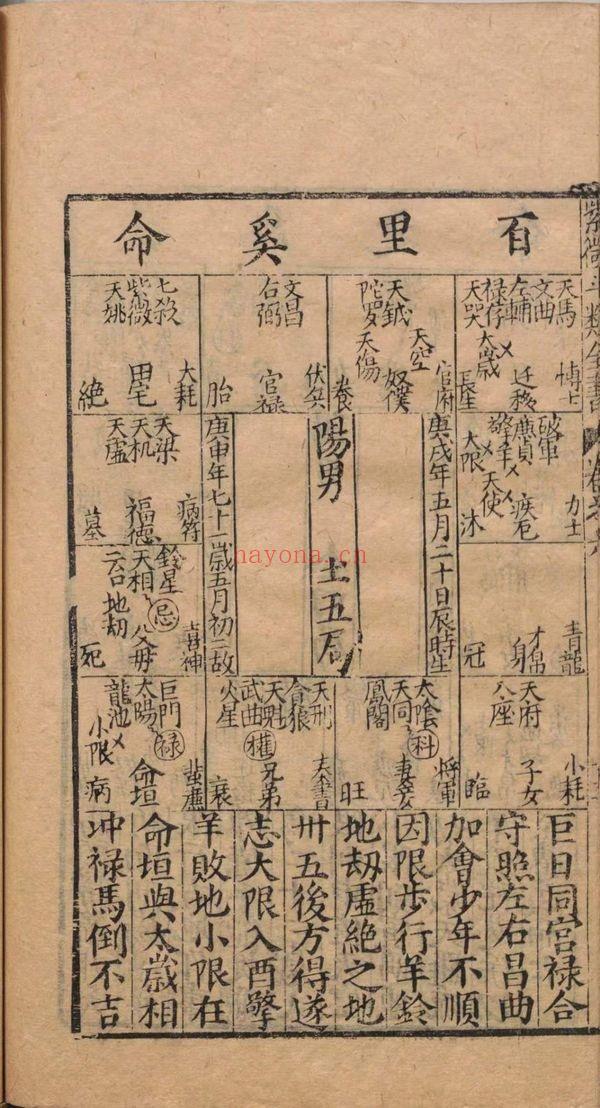 百里奚命
天馬
文曲
左輔
禄存
天哭
太歲
博士
迁移
長生
天鉞
陀罗
天空
天傷
官府
奴僕
養
文昌
右弼
伏兵
官禄
胎
七殺
紫微
天姚
大耗
田宅
絶
破軍
廉貞
擎羊
大限
天使
力士
疾厄
沐
庚戌年五月二十日辰時生
陽男 土五局
庚申年七十一歲五月初二故
天梁
天机
天虛
病符
福德
墓
青龍
才帛
身
冠
鈴星
天相
忌
三台
地劫
喜神
父母
死
天府
八座
小耗
子女
臨
太陰
天同
科
鳳閣
將軍
妻妾
旺
天刑
貪狼
天魁
武曲
權
火星
奏書
兄弟
衰
巨門
太陽
禄
龍池
小限
蜚廉
命垣
病
巨日同宮禄合
守照左右昌曲
加會少年不順
因限步行羊鈴
地劫虛絶之地
卅五後方得遂
志大限入酉擎
羊敗地小限在
命垣與太歲相
冲禄馬倒不吉
hayona.cn